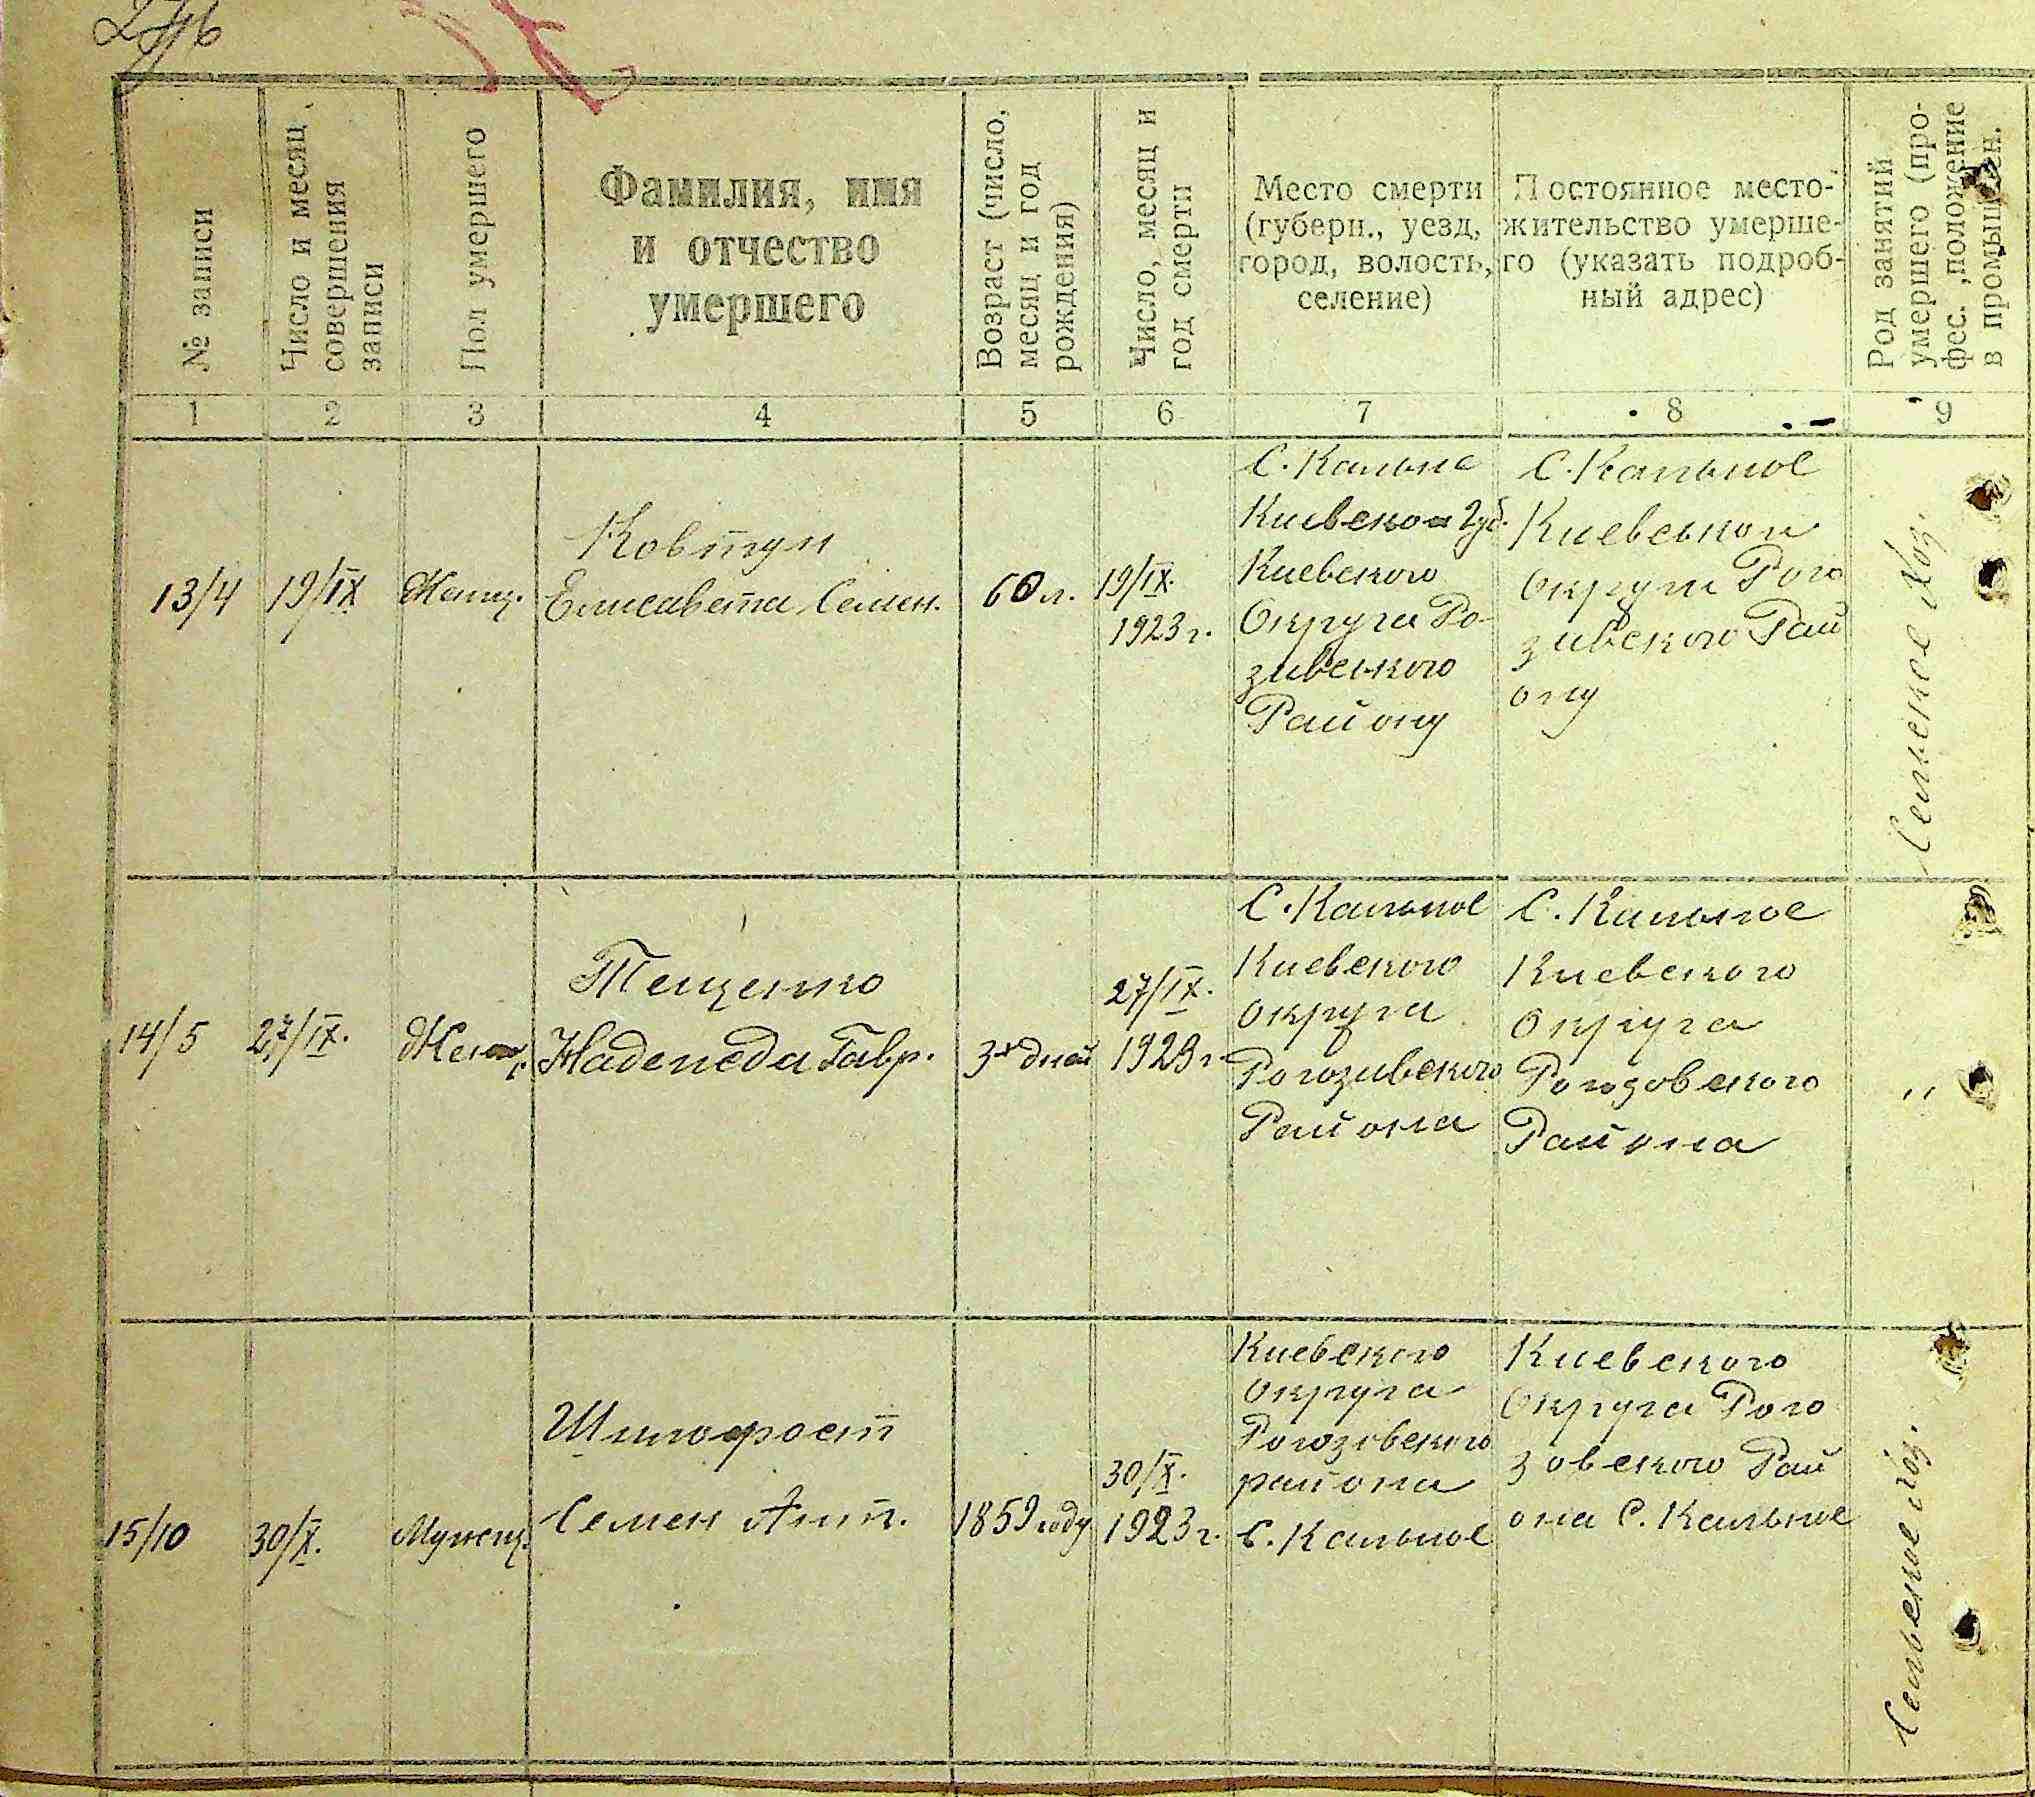 № записи
Число и месяц
совершения
записи
Пол умершего
Фамилия, имя
и отчество
умершего
Возраст (число,
месяц и год
рождения)
Число, месяц и
год смерти
Место смерти
(губерн., уезд,
город, волость,
селение)
Постоянное место-
жительство умерше-
го (указать подроб-
ный адрес)
Род занятий
умершего (про-
фес., положение
в промышлен.
1 2 3 4 5 6 7 8 9
13/4
19/IX
Женщ.
Ковтун
Елисавета Семен.
60 л.
19/IX.
1923 г.
С. Кальне
Киевской Губ.
Киевского
Округа Ро-
зивського
Району
С. Кальное
Киевськои
Округи Рого
зивского Рай
ону
Сельское Хоз.
14/5
27/IX.
Женщ.
Тещенко
Надежда Гавр.
3х дней
27/IX.
1923 г.
С. Кальное
Киевского
округа
Рогозивского
Района
С. Кальное
Киевского
Округа
Рогозовского
Района
"
15/10
30/X.
Мужещ.
Шипорост
Семен Ант.
1859 году
30/X.
1923 г.
Киевского
округа
Рогозовского
района
С. Кальное
Киевского
Округа Рого
зовского Рай
она С. Кальное
Сельское Хоз.